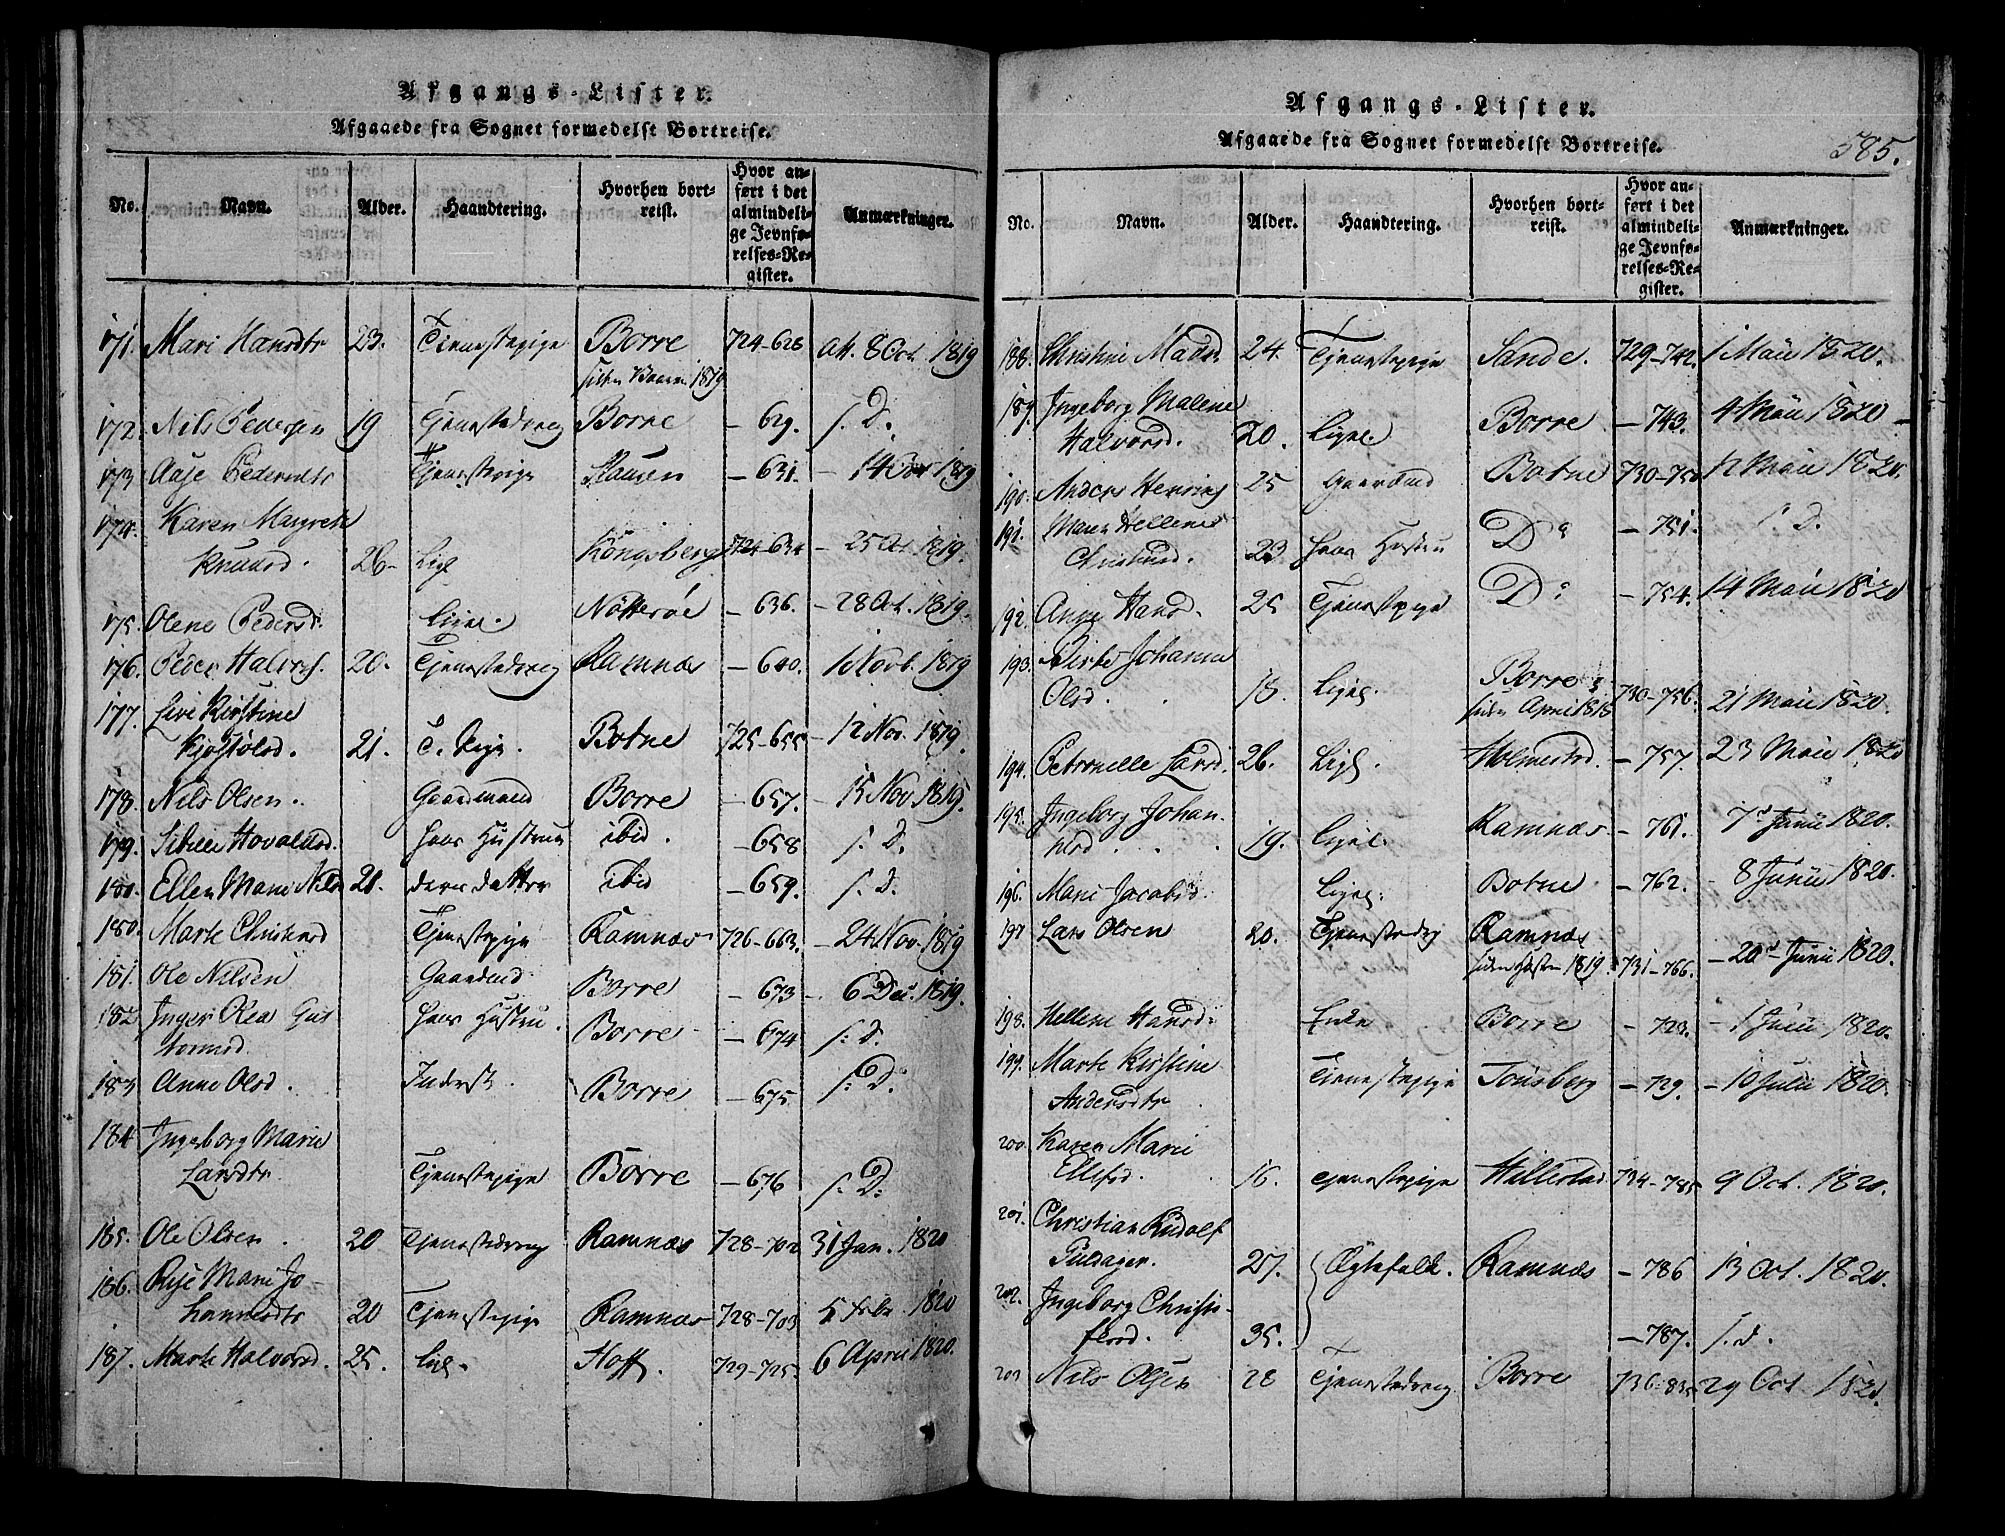 Afgangs-Lister.
Afgaaede fra Sognet formedelst Bortreise.
No. Navn. Alder. Haandtering. Hvorhen bortreist. Hvor anført i det almindelige Jevnførelses-Register. Anmærkninger.
171. Mari Hansdtr 23. Tienestepige Borre 724-628 att. 8 Oct. 1819
1819
172. Nils Pedersen 19 Borre - 629. s. D.
173. Aase Pedersdtr Tjenestepige - 631. - 14 Oct 1819
174. Karen Margrete
Knudsd. 26- Lige Kongsberg 724-634 - 25 Oct. 1819.
175. Olene Pedersd. Ligel. Nötterøe - 636. - 28 Oct. 1819.
176. Peder Halvors. 20. Tjenestedreng Ramnæs - 640. 1 Novb. 1819
177. Live Kirstine
21. T. Pige Botne 725-655 - 12 Nov. 1819.
178. Nils Olsen. Gaardmand Borre - 657. - 15 Nov. 1819.
179. Hovaldsd. hans Hustrue ibid. - 658 s. D.
180. Ellen Marie Nilsd 21. deres datter ibid - 659. s. D.
180. Marte Christensd Tjenestepige Ramnæs 726-663. - 24 Nov. 1819
181. Ole Nilsen Gaardmd Borre - 673 - 6 Dec. 1819.
182 Inger Rea Gut
tormsd. hans Hustru. Borre - 674 s. D.
183 Anne Olsd. Inderst. Borre - 675 s. D.
184 Ingeborg Marie
Larsdtr. Tjenestepige Borre - 676 s. D.
185. Ole Olsen. 20 Tjenestedreng Ramnæs 728-702 31 Jan. 1820
186. Marie Jo-
hannesdtr 20 Tjenestepige Ramnæs 728-703 5 Febr. 1820
187. Marte Halvorsd. 25. Lige Hoff. 729-725. 6 April 1820.
Afgangs-Lister.
Afgaaede fra Sognet formedelst Bortreise.
385.
No. Navn. Alder. Haandtering. Hvorhen bortreist. Hvor anført i det almindelige Jevnførelses-Register. Anmærkninger.
188. Christine Madsd. 24. Tjenestepige Sande. 729-742. 1 Maii 1820.
189. Ingeborg Malene
Halvorsd. 20. Ligel. Borre - 743. 4 Maii 1820
190. Anders Henrins 25 Gaardmd Botne 730-750 12 Maii 1820.
191. Maren Hellene
23 hans Hustru Do - 751. s. d.
192. Anne Hansd. 25 Tjenestepige Do - 754. 14 Maii 1820
193. Birte Johanne
Olsd. 18. Ligel. Borre 730-756. 21 Maii 1820.
siden April 1818
194. Petronelle Larsd. 26. Ligel. Holmestrd. - 757. 23 Maii 1820
195. Ingeborg Johan-
nsd. 19. Ligel. Ramnæs - 761. 7d Junii 1820.
196. Marie Jacobsd. Ligel. Botne - 762. - 8 Junii 1820.
197 Lars Olsen 20. Tjenestedrg Ramnæs
siden Høsten 1819. 731-766. - 20d Junii 1820.
198. Hellene Hansd. Enke Borre - 723. - 1 Junii 1820.
199. Marte Kirstine
Andersdtr Tienestepige Tonsberg - 729. - 10 Julii 1820.
200. Karen Marie
Ellefsd. 16. Tjenestepige Hillestad 734-785 9 Oct. 1820.
201. Christian Rudolf
Gulsager. 27. Ægtefolk. Ramnæs - 786 13 Oct. 1820.
202. Ingeborg Christo-
fersd. 35. - 787. s. d.
203 Nils Olsen 28 Tjenestedreng. Borre 736-835 29 Oct. 1820.